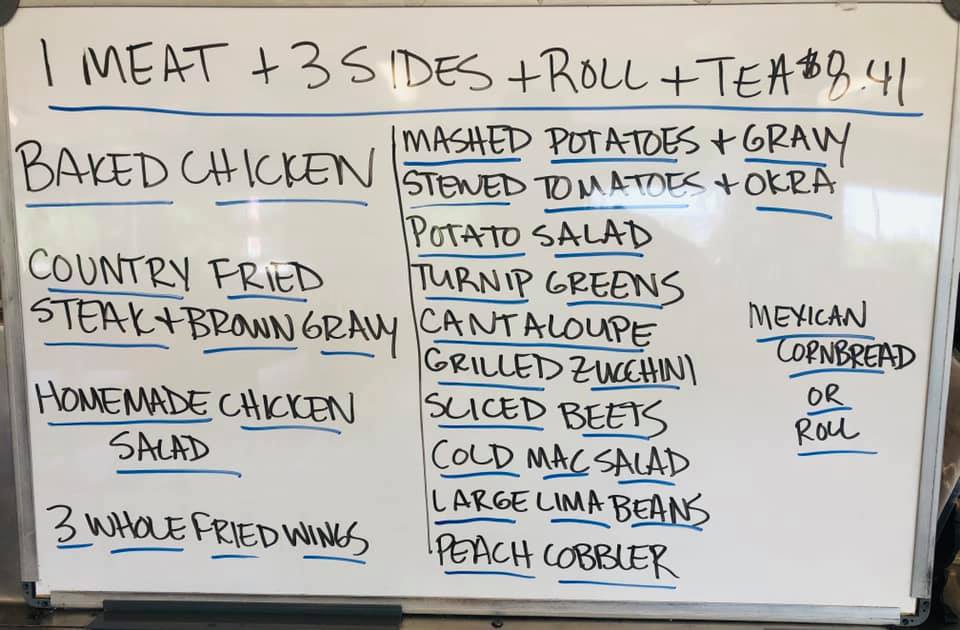 1 MEAT + 3 SIDES + ROLL + TEA $8.41
BAKED CHICKEN
COUNTRY FRIED
STEAK + BROWN GRAVY
HOMEMADE CHICKEN
SALAD
3 WHOLE FRIED WINGS
MASHED POTATOES + GRAVY
STEWED TOMATOES + OKRA
POTATO SALAD
TURNIP GREENS
CANTALOUPE
GRILLED ZUCCHINI
SLICED BEETS
COLD MAC SALAD
LARGE LIMA BEANS
PEACH COBBLER
MEXICAN
CORNBREAD
OR
ROLL